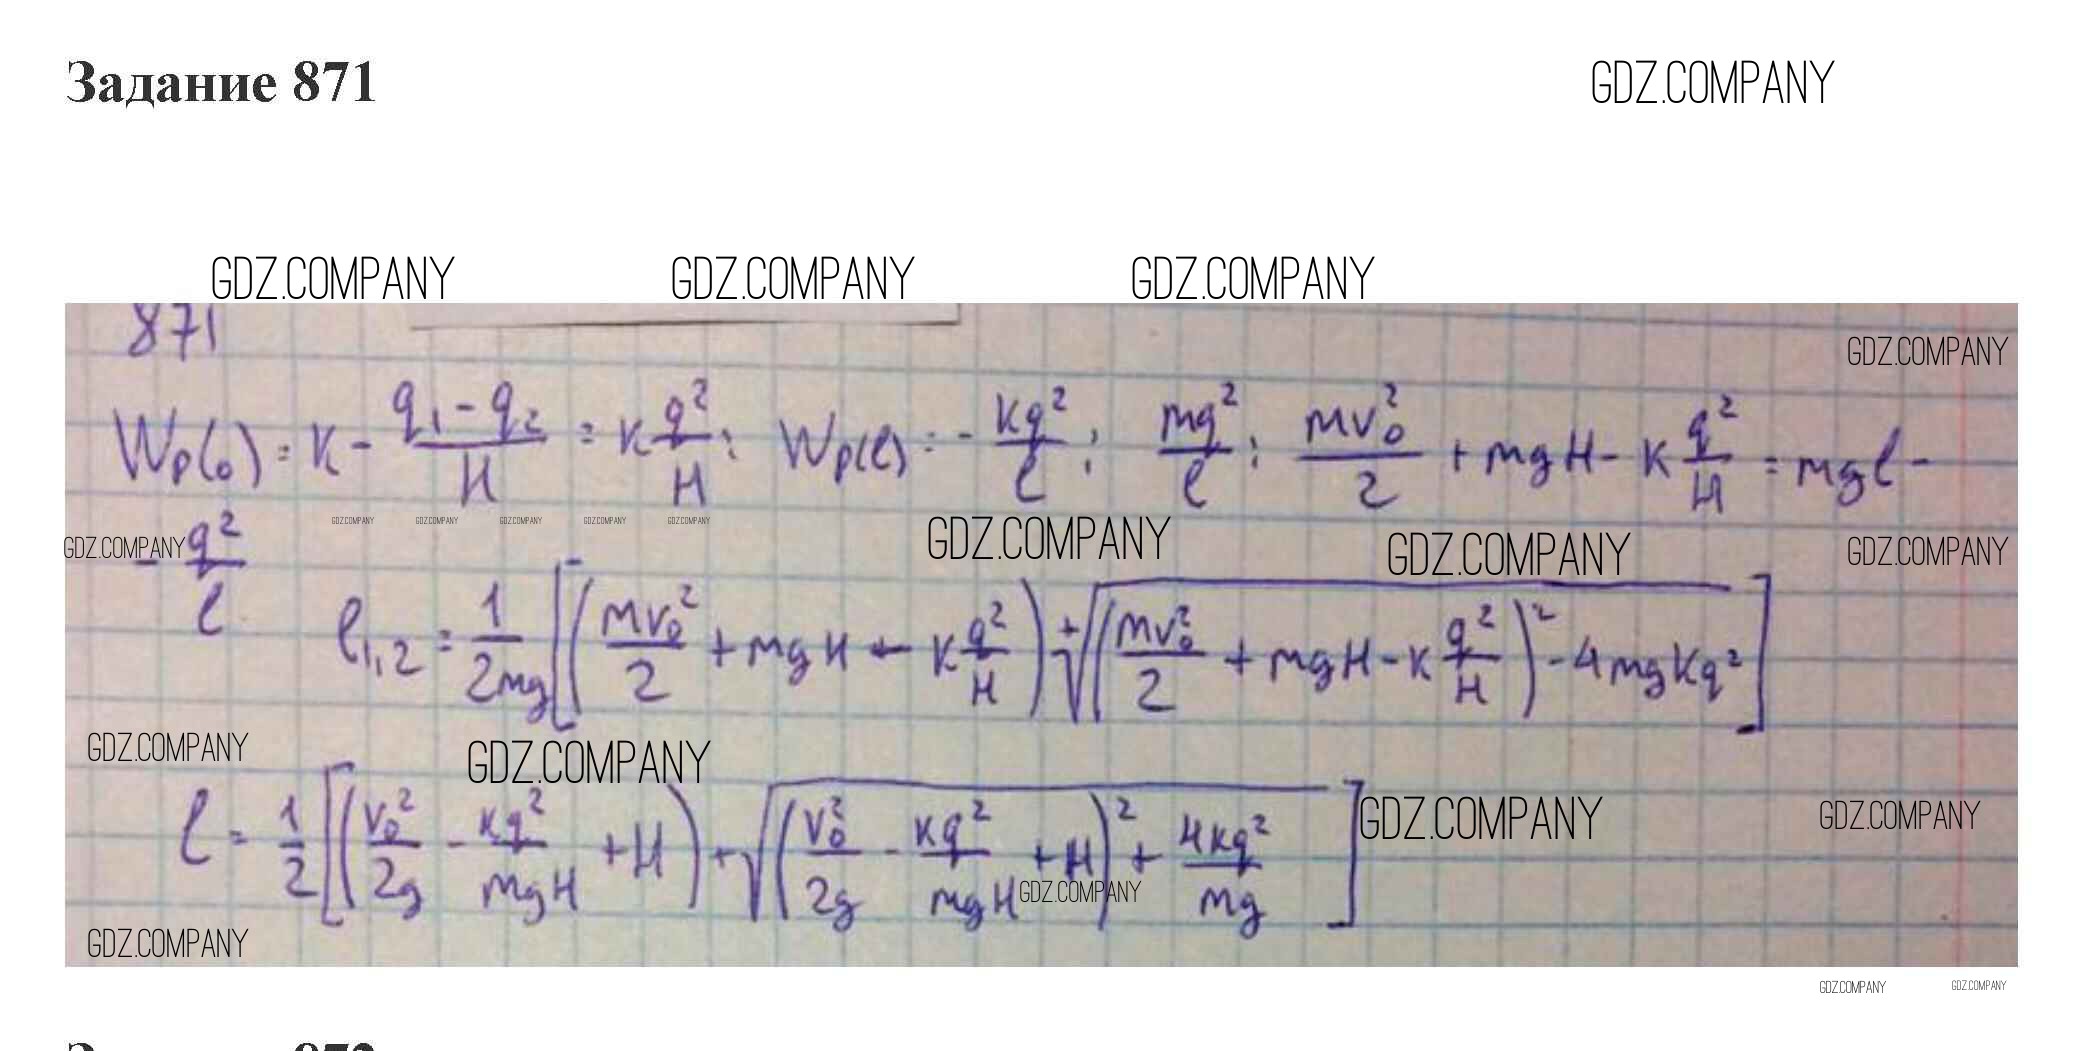 Задание 871
GDZ.COMPANY
GDZ.COMPANY GDZ.COMPANY GDZ.COMPANY
871
GDZ.COMPANY
Wp(o) = K - (q₁ - q₂)/H = K q²/H ; Wp(l) = - Kq²/l ; mq²/l ; mv₀²/2 + mgH - K q²/H = mgl -
GDZ.COMPANY GDZ.COMPANY GDZ.COMPANY GDZ.COMPANY GDZ.COMPANY
GDZ.COMPANY GDZ.COMPANY GDZ.COMPANY GDZ.COMPANY
- q²/l
l₁,₂ = 1/2mg [(mv₀²/2 + mgH + K q²/H) ± √((mv₀²/2 + mgH - K q²/H)² - 4mgKq²)]
GDZ.COMPANY GDZ.COMPANY
l = 1/2 [(v₀²/2g - Kq²/mgH + H) + √((v₀²/2g - Kq²/mgH + H)² + 4Kq²/mg)]
GDZ.COMPANY GDZ.COMPANY
GDZ.COMPANY
GDZ.COMPANY
GDZ.COMPANY GDZ.COMPANY